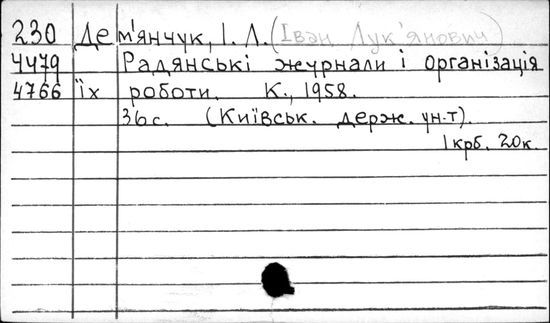 230 Дем'янчук, І. Л. (Іван Лук'янович)
4479 Радянські журнали і організація
4766 їх роботи. К., 1958.
36 с. (Київськ. держ. ун-т).
1 крб. 20к.